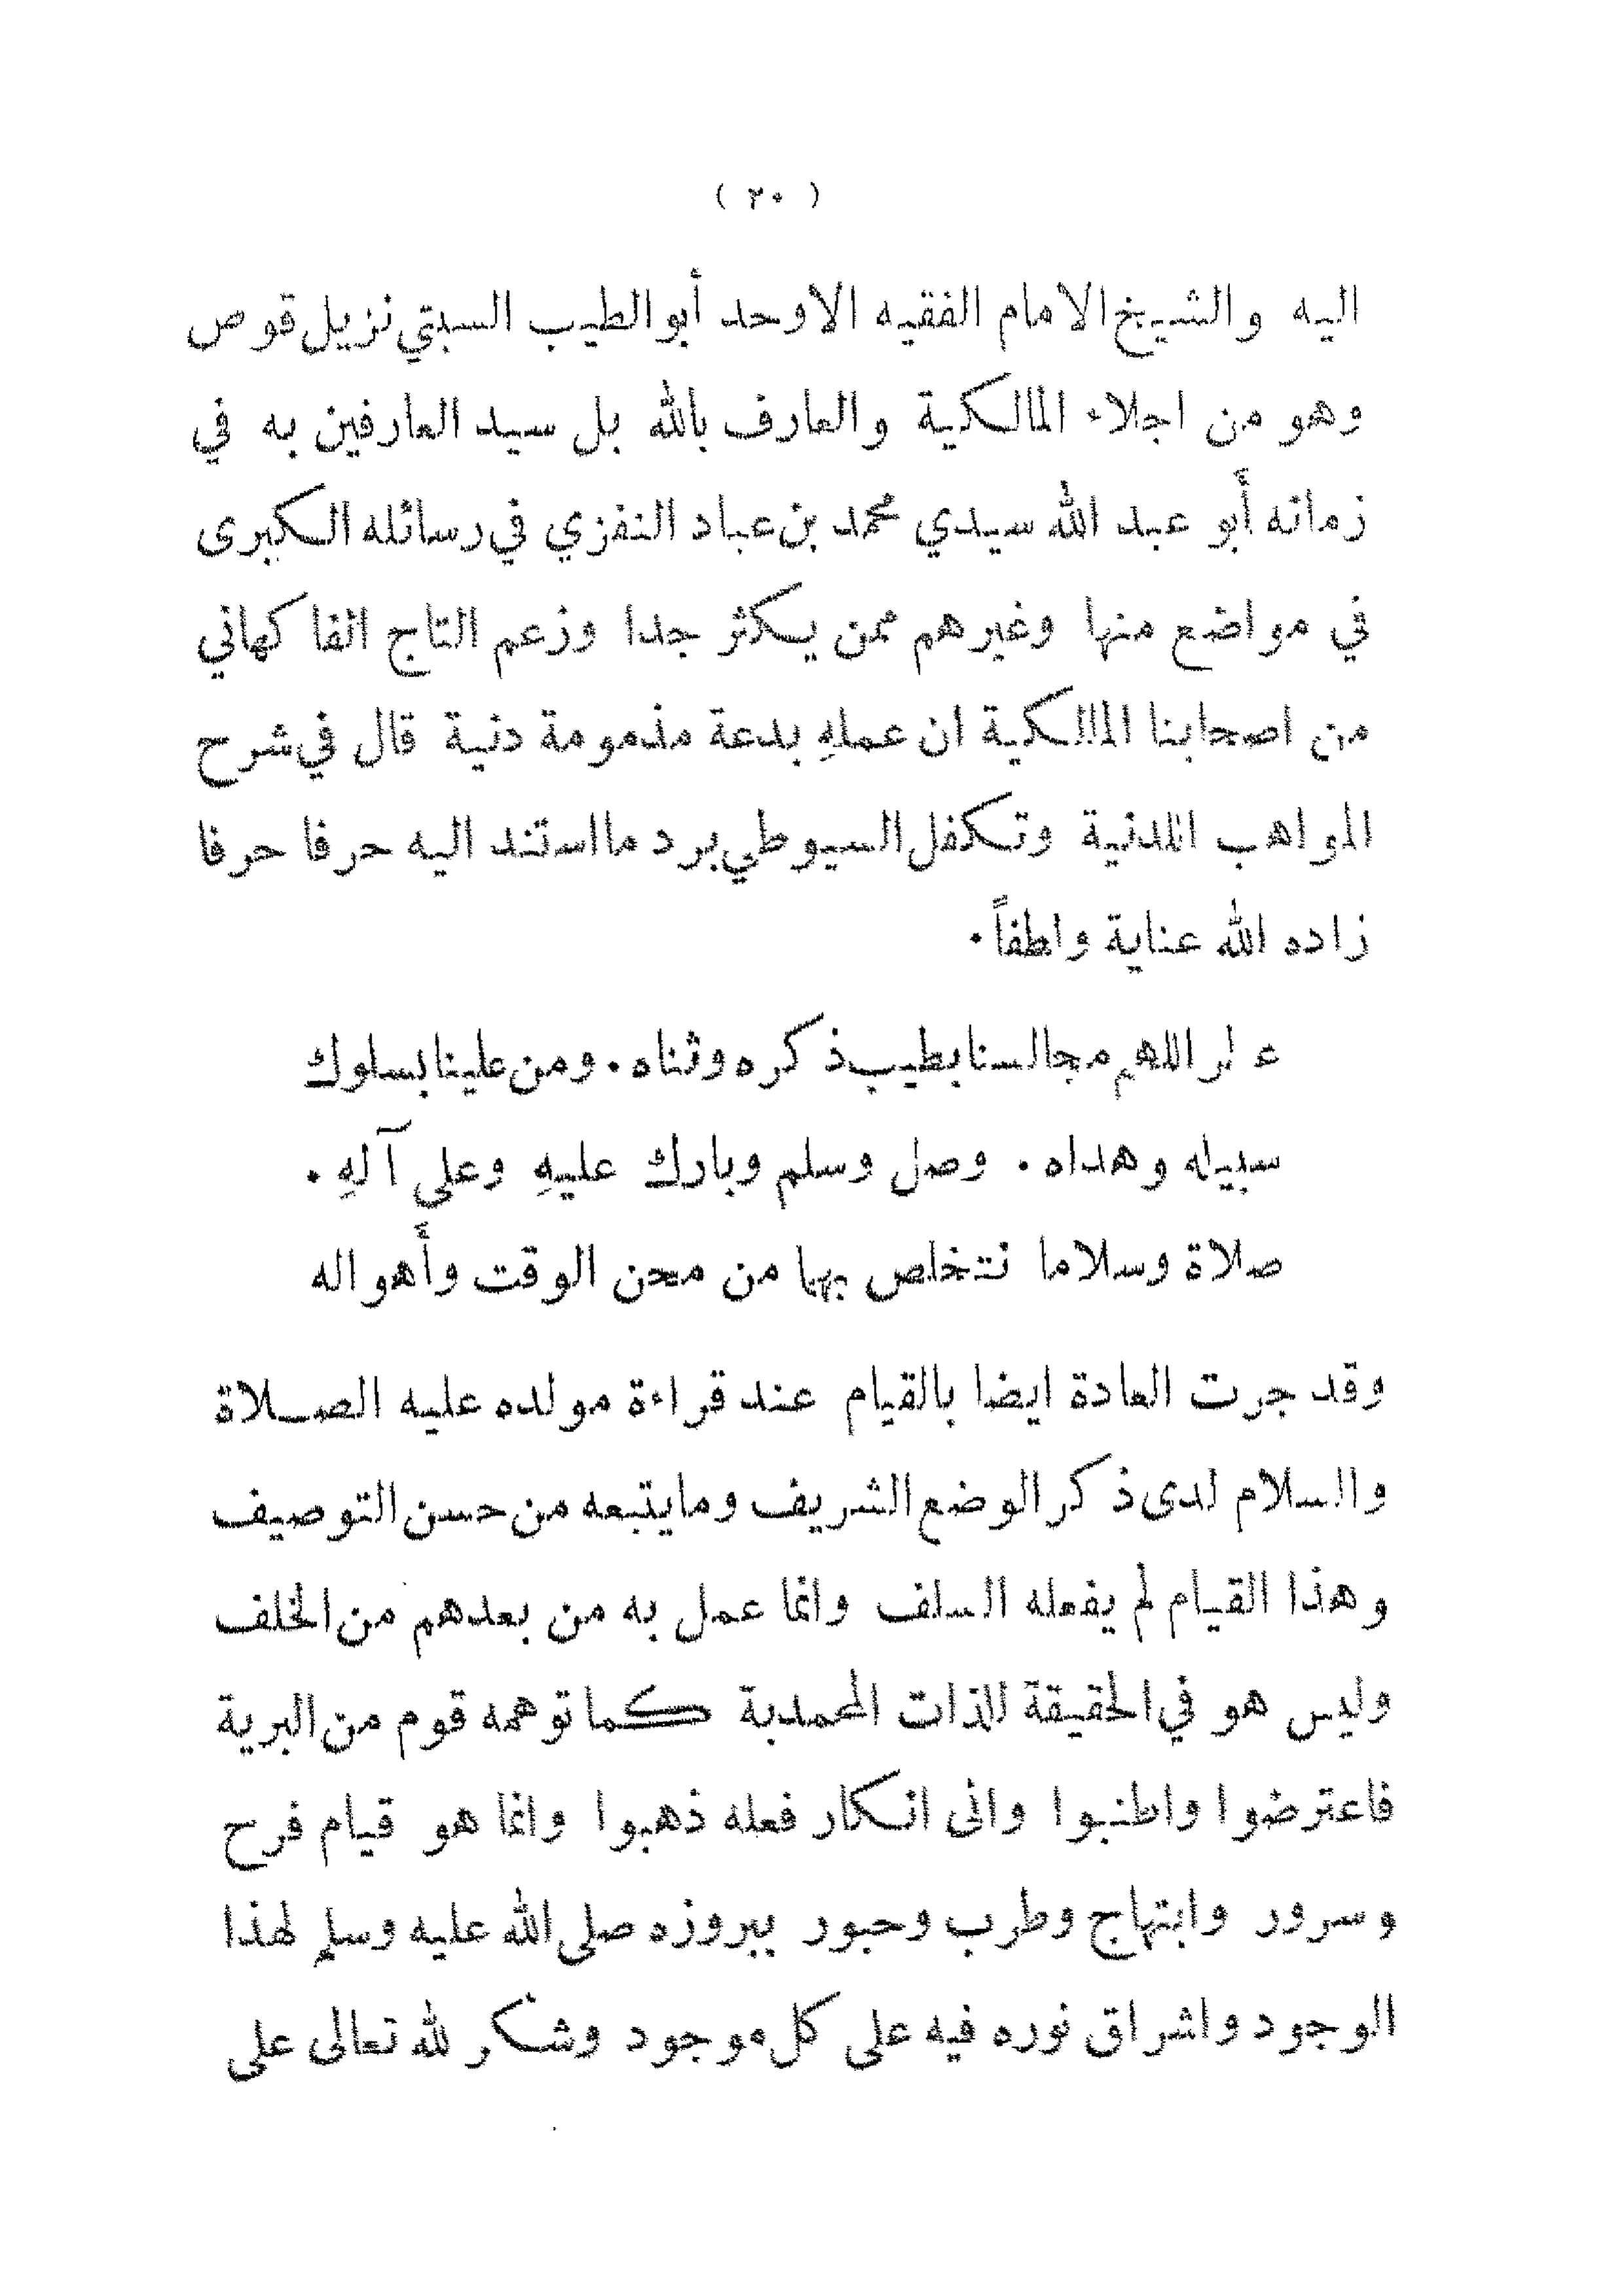 ( ٢٠ )
اليه والشيخ الامام الفقيه الاوحد أبو الطيب السبتي نزيل قوص
وهو من اجلاء المالكية والعارف بالله بل سيد العارفين به في
زمانه أبو عبد الله سيدي محمد بن عباد النفزي في رسائله الكبرى
في مواضع منها وغيرهم ممن يكثر جدا وزعم التاج الفاكهاني
من اصحابنا المالكية ان عملهِ بدعة مذمومة دنية قال في شرح
المواهب اللدنية وتكفل السيوطي برد ما استند اليه حرفا حرفا
زاده الله عناية ولطفاً ٠
عطر اللهم مجالسنا بطيب ذكره وثناه ٠ ومن علينا بسلوك
سبيله وهداه ٠ وصل وسلم وبارك عليهِ وعلى آلهِ ٠
صلاة وسلاما نتخلص بهما من محن الوقت وأهواله
وقد جرت العادة ايضا بالقيام عند قراءة مولده عليه الصلاة
والسلام لدى ذكر الوضع الشريف وما يتبعه من حسن التوصيف
وهذا القيام لم يفعله السلف وانما عمل به من بعدهم من الخلف
وليس هو في الحقيقة للذات المحمدية كما توهمه قوم من البرية
فاعترضوا واطنبوا والى انكار فعله ذهبوا وانما هو قيام فرح
وسرور وابتهاج وطرب وحبور ببروزه صلى الله عليه وسلم لهذا
الوجود واشراق نوره فيه على كل موجود وشكر لله تعالى على